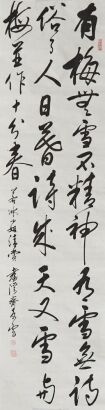 有梅無雪不精神有雪無詩
俗了人日暮詩成天又雪與
梅並作十分春 小姐清賞